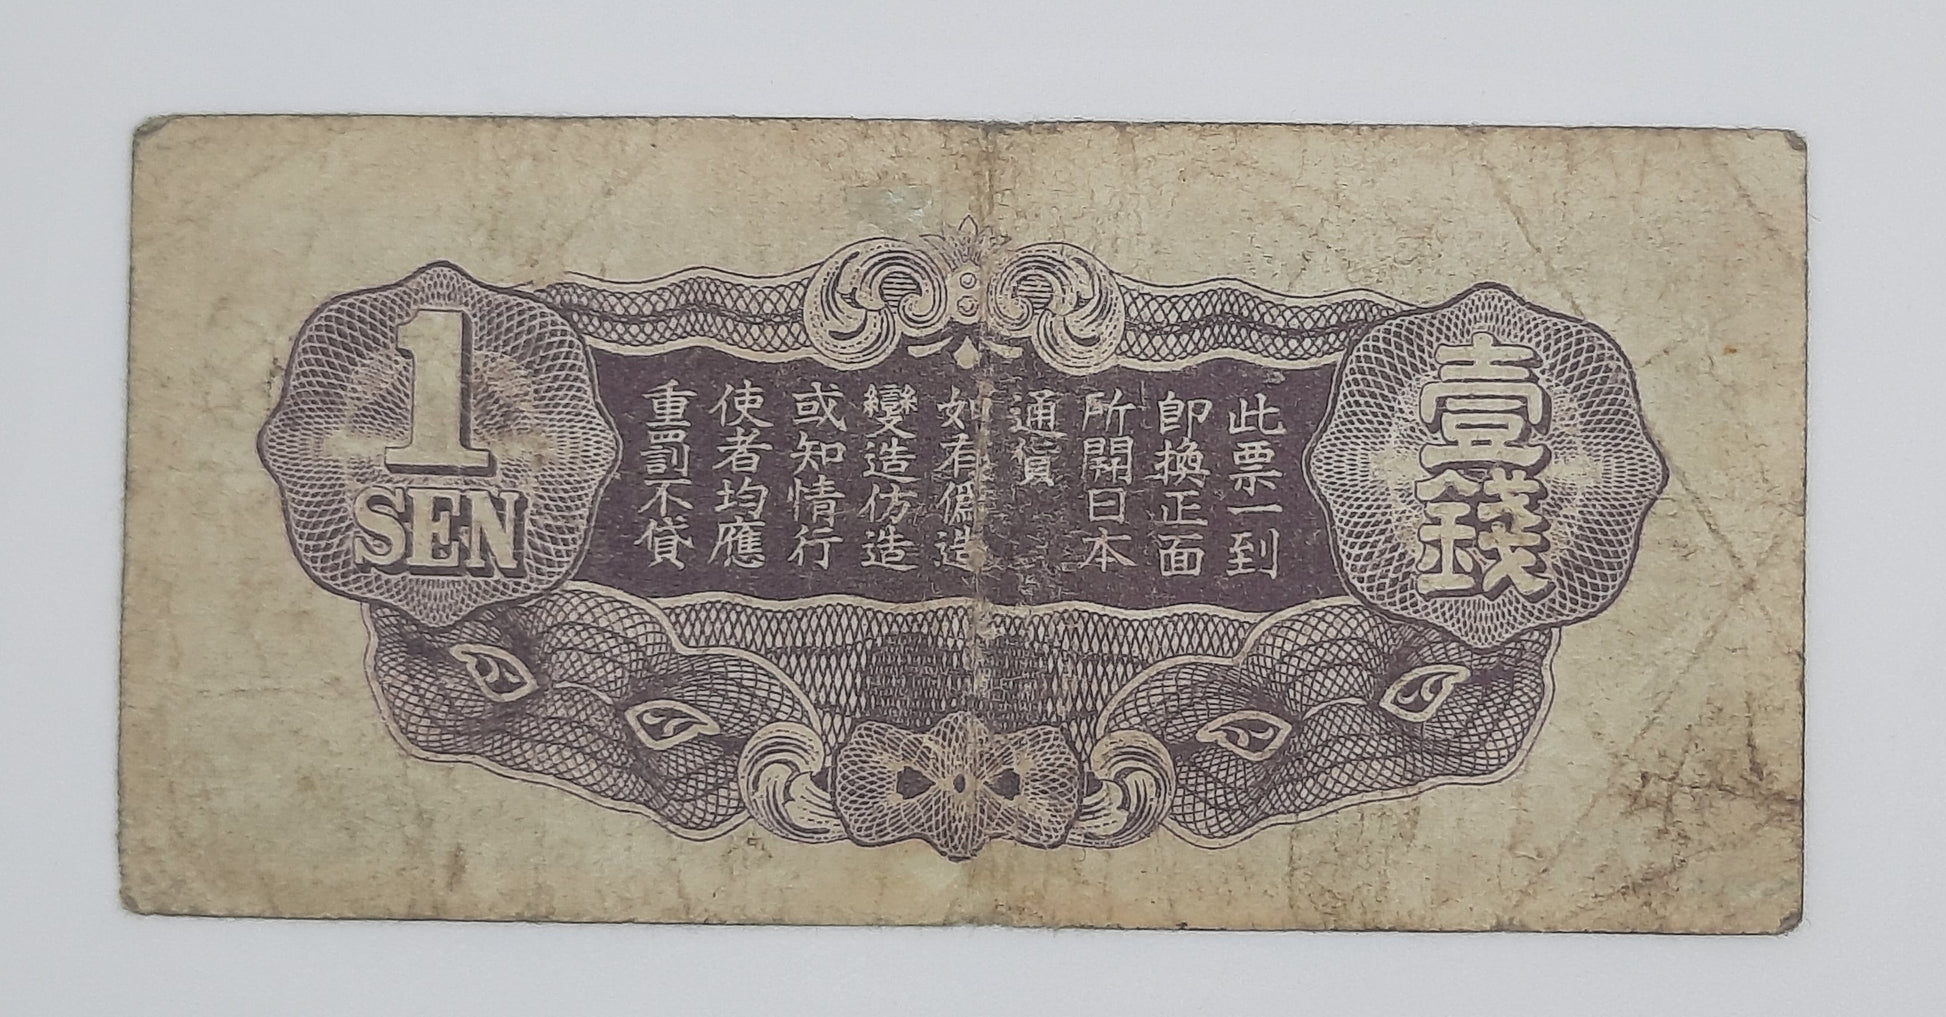 壹錢
此票一到
卽換正面
所開日本
通貨
如有僞造
變造仿造
或知情行
使者均應
重罰不貸
1
SEN